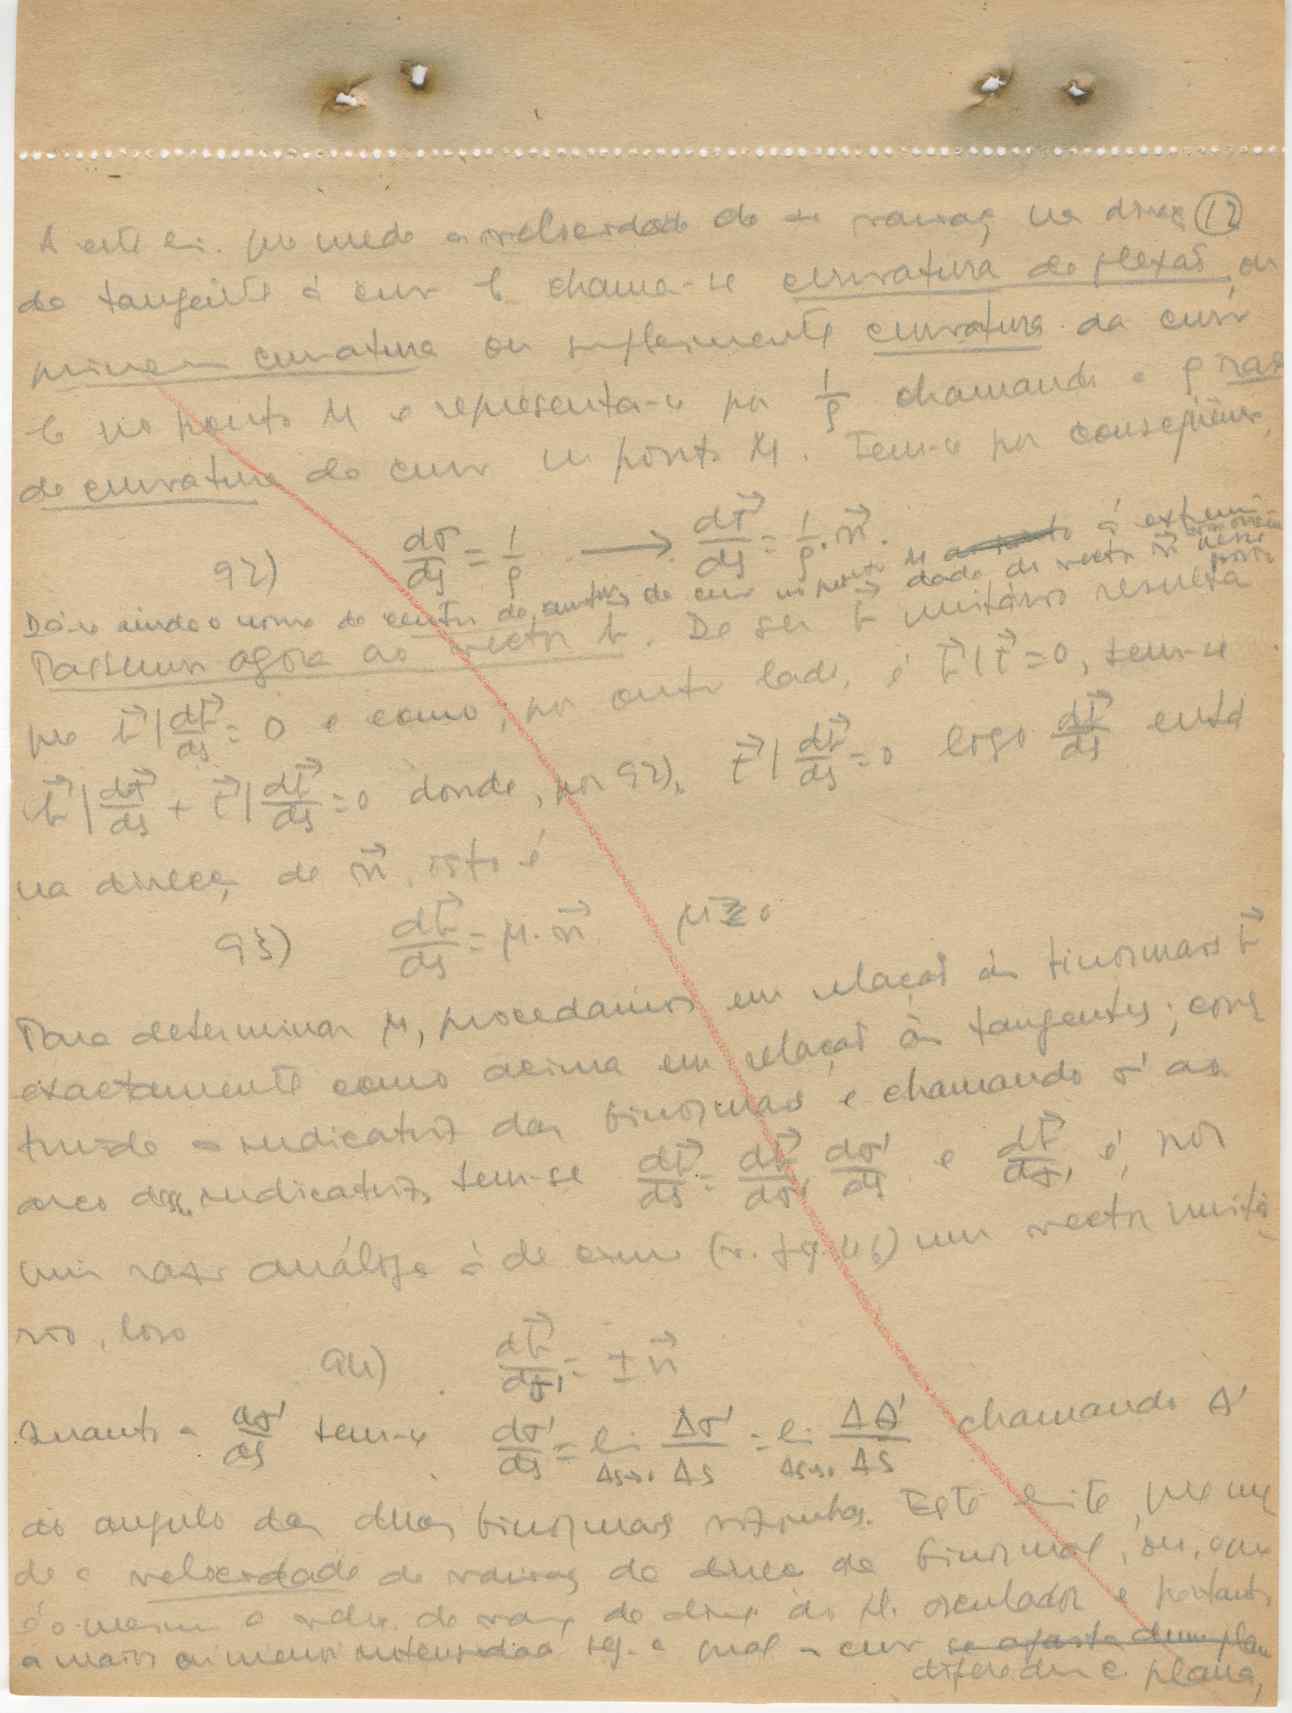 A este li. que mede a velocidade de variaç na direcç (12)
da tangente à cur C chama-se curvatura de flexaõ, ou
primeira curvatura ou simplesmente curvatura da curv
C no ponto M e representa-se por 1/ρ chamando a ρ raio
de curvatura da curv no ponto M. Tem-se por consequênc.
92) dσ/ds = 1/ρ ⟶ dt⃗/ds = 1/ρ · n⃗.
Dá-se ainda o nome de centro de curvatura da curv no ponto M à extremi
dade do vector n⃗ nesse ponto
Passemos agora ao vector b⃗. De ser b⃗ unitário resulta
que b⃗ | db⃗/ds = 0 e como, por outro lado, é b⃗ | t⃗ = 0, tem-se
b⃗ | dt⃗/ds + t⃗ | db⃗/ds = 0 donde, por 92), t⃗ | db⃗/ds = 0 logo db⃗/ds está
na direcç de n⃗, isto é
93) db⃗/ds = μ · n⃗ μ ≷ 0
Para determinar μ, procedamos em relaçaõ às binormais b⃗
exactamente como acima em relaçaõ às tangentes; cons
truido a indicatriz das binormais e chamando σ' ao
arco da indicatriz, tem-se db⃗/ds = db⃗/dσ' dσ'/ds e db⃗/dσ' é, por
uma razaõ análoga à de cima (v. fig. 46) um vector unitá
rio, logo
94) db⃗/dσ' = ± n⃗
Quanto a dσ'/ds tem-se dσ'/ds = li Δs→0 Δσ'/Δs = li Δs→0 Δθ'/Δs chamando θ'
ao angulo das duas binormais vizinhas. Este limite, que me
de a velocidade de variaç da direcç da binormal, ou, o que
é o mesmo a veloc. de varaç da direcç do pl. osculador e portanto
a maior ou menor intensidade seg. a qual a cur se afasta dum plan
difere duma c. plana,